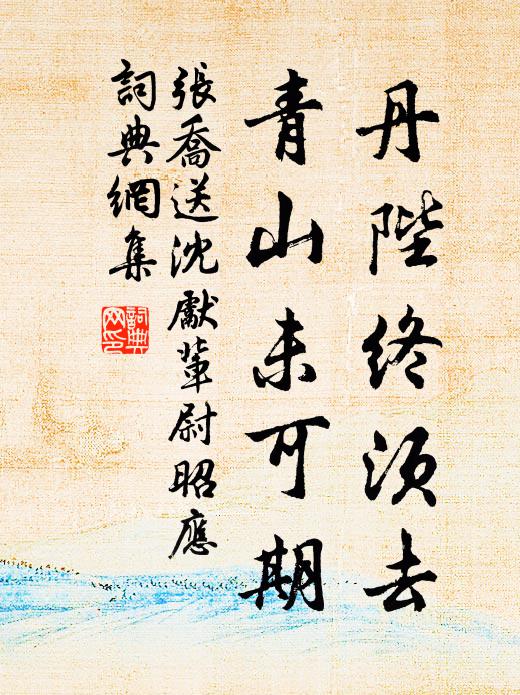 丹陛終須去
青山未可期
張喬送沈獻輩尉昭應
詞典網集
詞典
网印